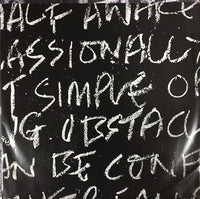 HALF AWAKE
ASSIONALLY
T SIMPLE OF
NG OBSTACL
AN BE CONF